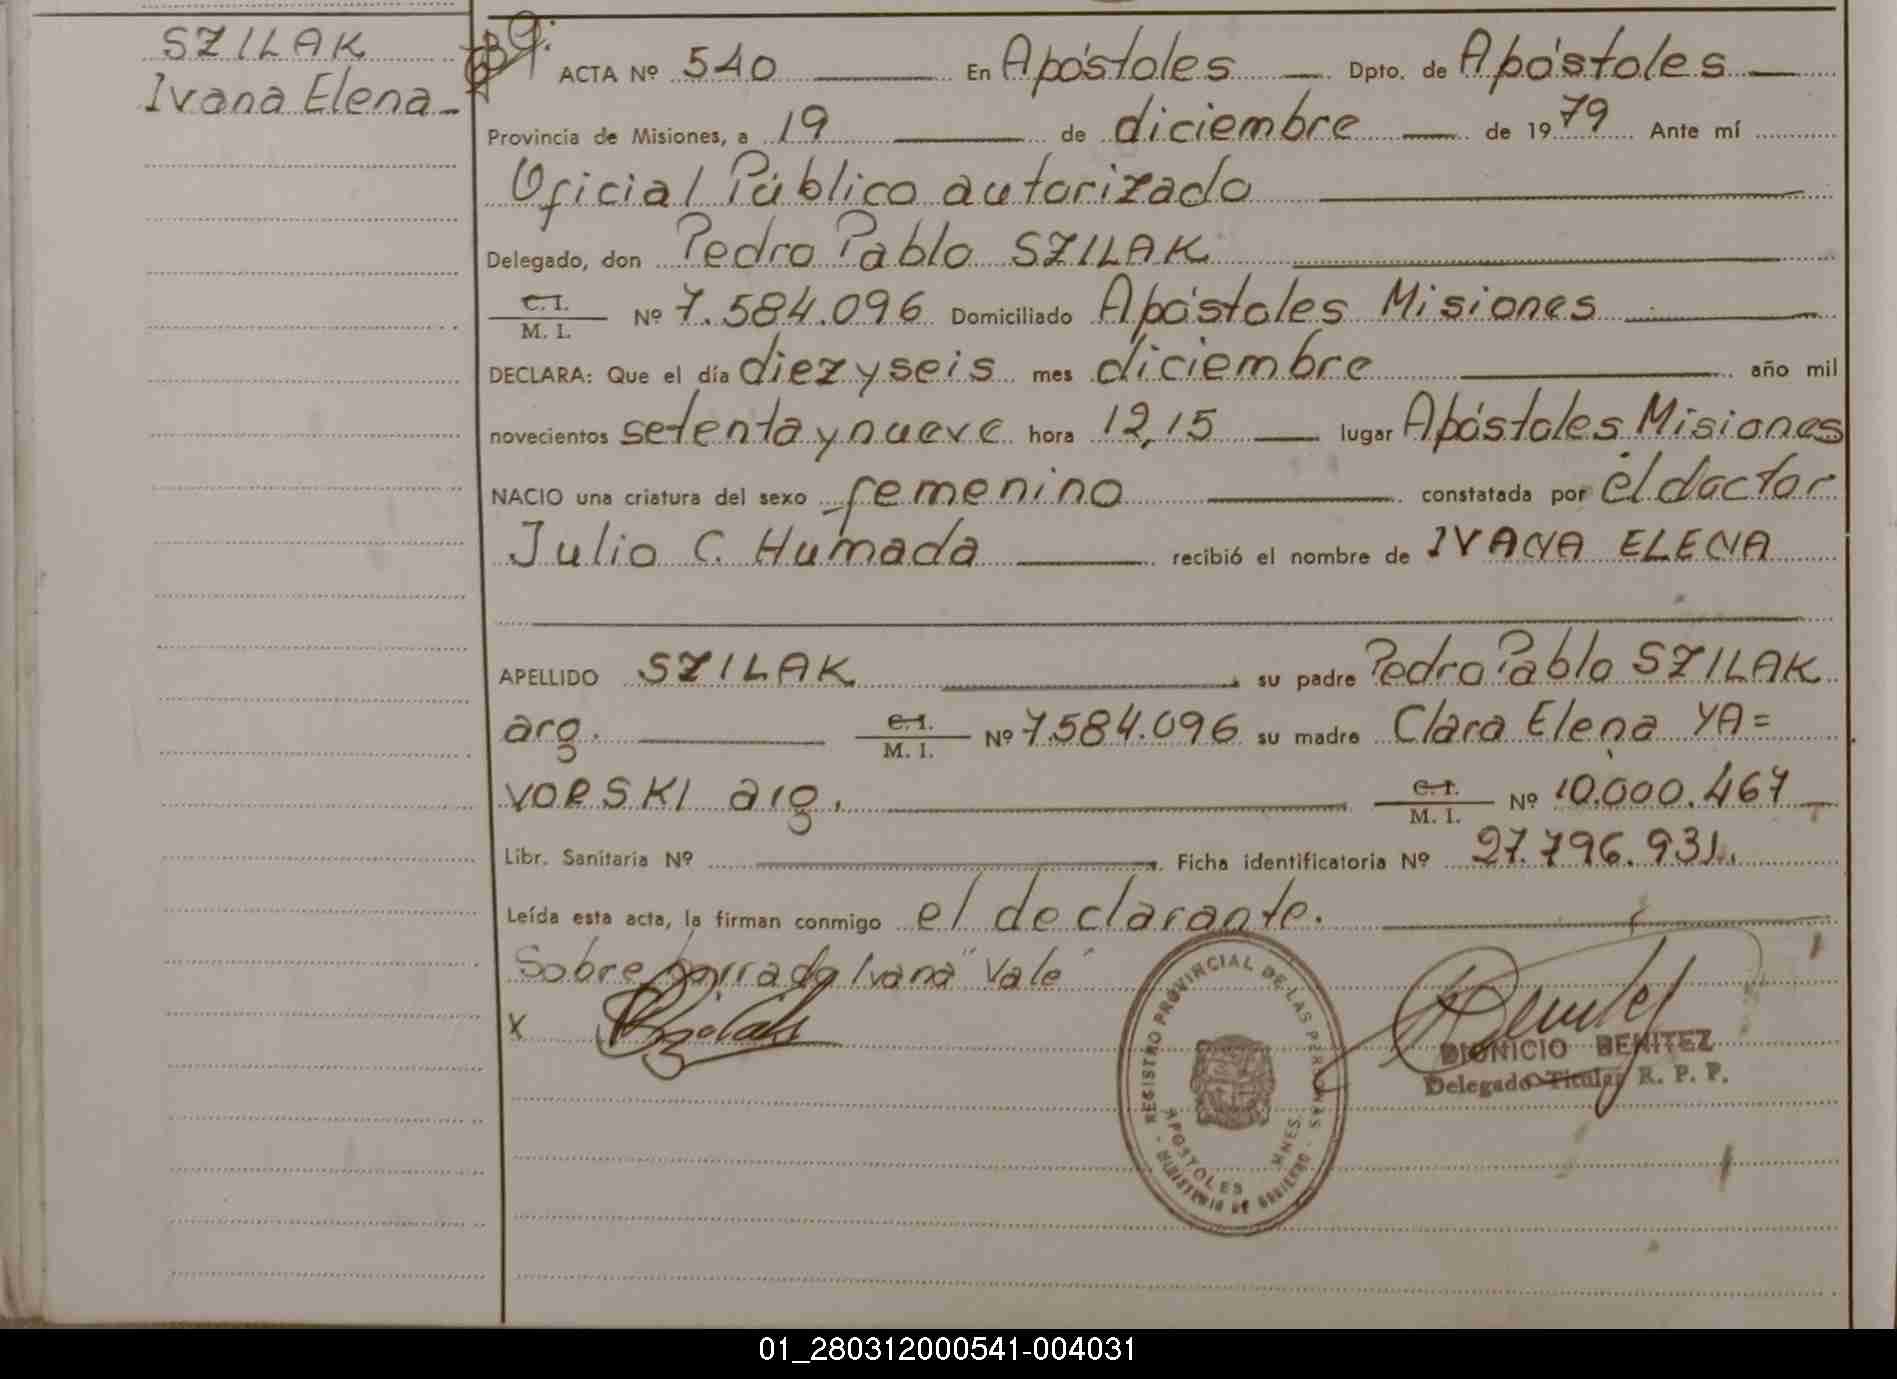 SZILAK
Ivana Elena
ACTA Nº 540 En Apóstoles Dpto. de Apóstoles
Provincia de Misiones, a 19 de diciembre de 1979 Ante mí
Oficial Público autorizado
Delegado, don Pedro Pablo SZILAK
C. I.
M. I. Nº 7.584.096 Domiciliado Apóstoles Misiones
DECLARA: Que el día diez y seis mes diciembre año mil
novecientos setenta y nueve hora 12,15 lugar Apóstoles Misiones
NACIO una criatura del sexo femenino constatada por el doctor
Julio C. Humada recibió el nombre de IVANA ELENA
APELLIDO SZILAK su padre Pedro Pablo SZILAK
arg. C. I. M. I. Nº 7.584.096 su madre Clara Elena YA=
VORSKI arg. C. I. M. I. Nº 10.000.467
Libr. Sanitaria Nº Ficha identificatoria Nº 27.796.931.
Leída esta acta, la firman conmigo el declarante.
Sobre borrado Ivana" Vale
X
REGISTRO PROVINCIAL DE LAS PERSONAS
APOSTOLES MNES.
MINISTERIO DE GOBIERNO
DIONICIO BENITEZ
Delegado Titular R. P. P.
01_280312000541-004031